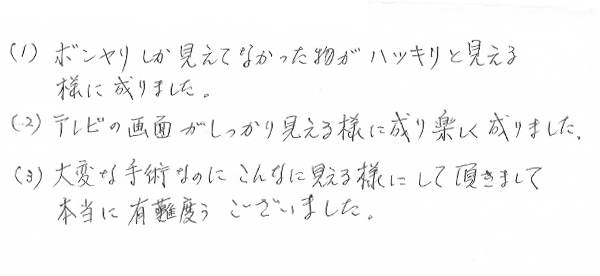 (1) ボンヤリしか見えてなかった物がハッキリと見える
様に成りました。
(2) テレビの画面がしっかり見える様に成り楽しく成りました。
(3) 大変な手術なのにこんなに見える様にして頂きまして
本当に有難度うございました。